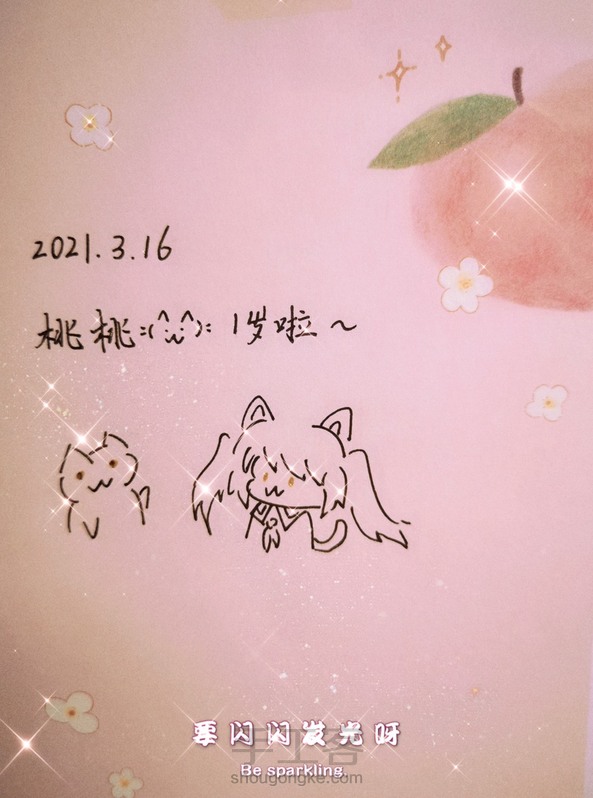 2021.3.16
桃桃:(^ω^): 1岁啦~
要闪闪发光呀
手工客
Be sparkling
shougongke.com